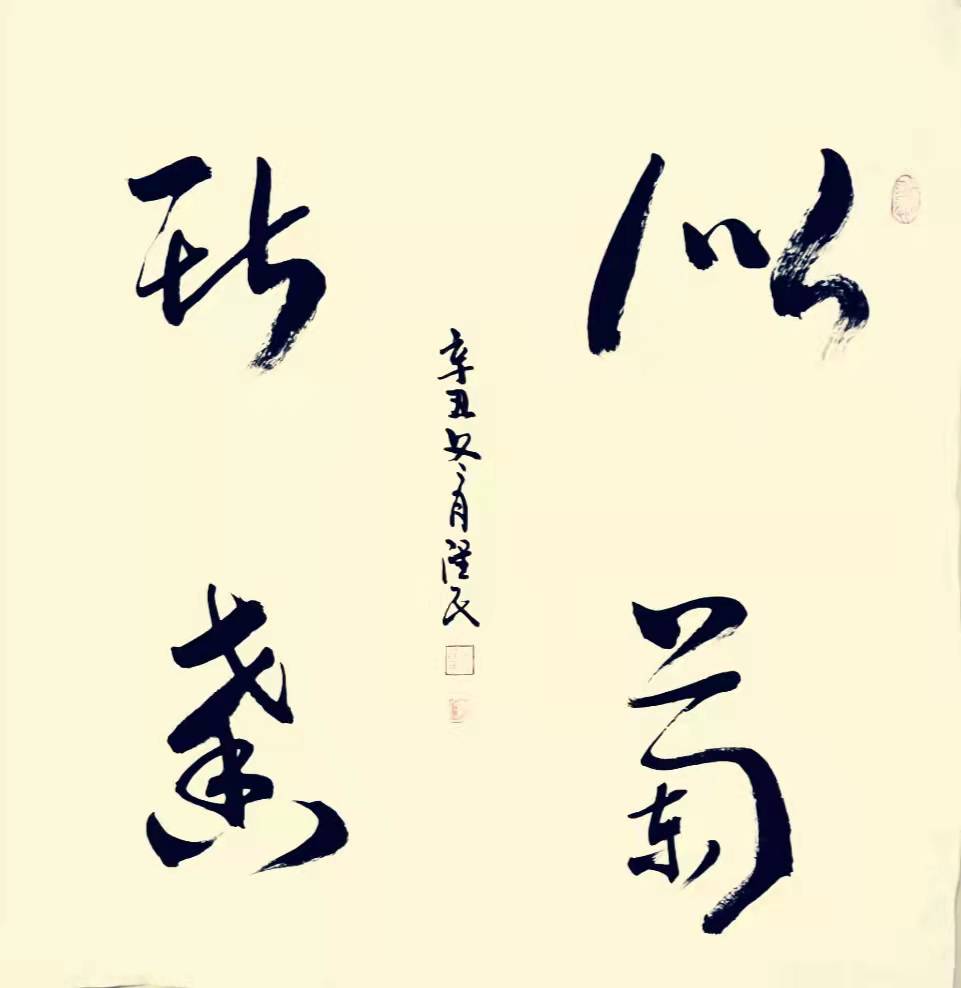 似蘭
斯馨
辛丑冬月隆民